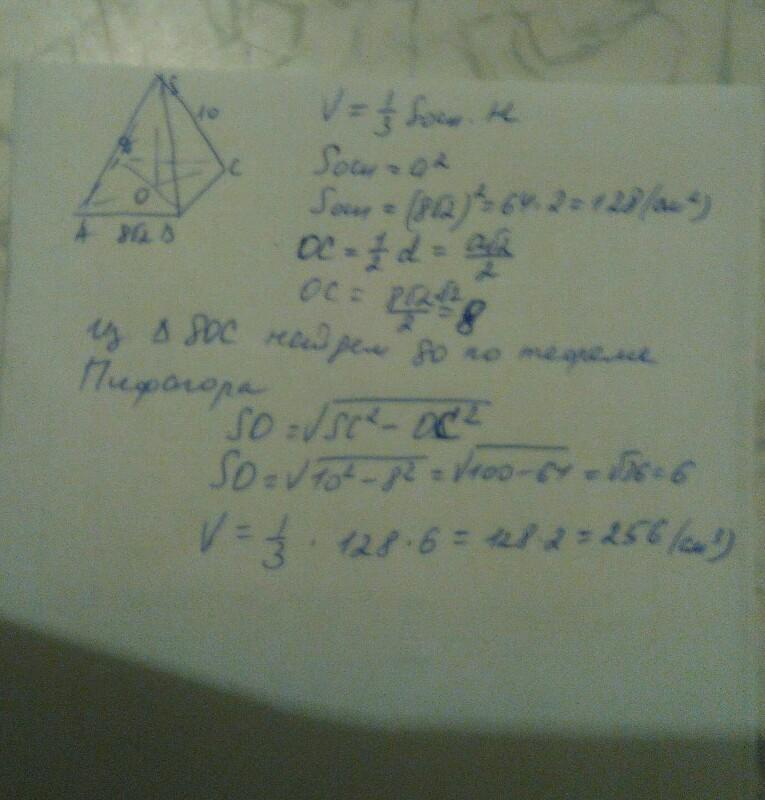 S
10
C
O
A 8√2 B
V = 1/3 Sосн. H
Sосн = a²
Sосн = (8√2)² = 64·2 = 128 (см²)
OC = 1/2 d = a√2/2
OC = 8√2·√2/2 = 8
Из Δ SOC найдем SO по теореме
Пифагора
SO = √SC² - OC²
SO = √10² - 8² = √100 - 64 = √36 = 6
V = 1/3 · 128 · 6 = 128 · 2 = 256 (см³)